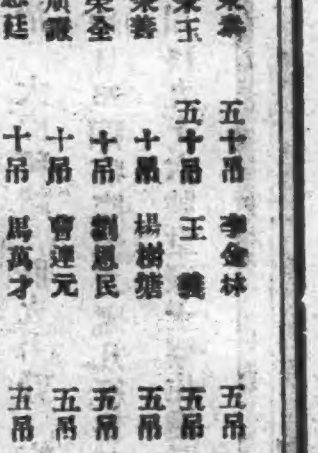 五十吊 李金林 五吊
玉 五十吊 王 五吊
善 十吊 楊樹塘 五吊
全 十吊 劉恩民 五吊
謙 十吊 曹運元 五吊
廷 十吊 馬萬才 五吊